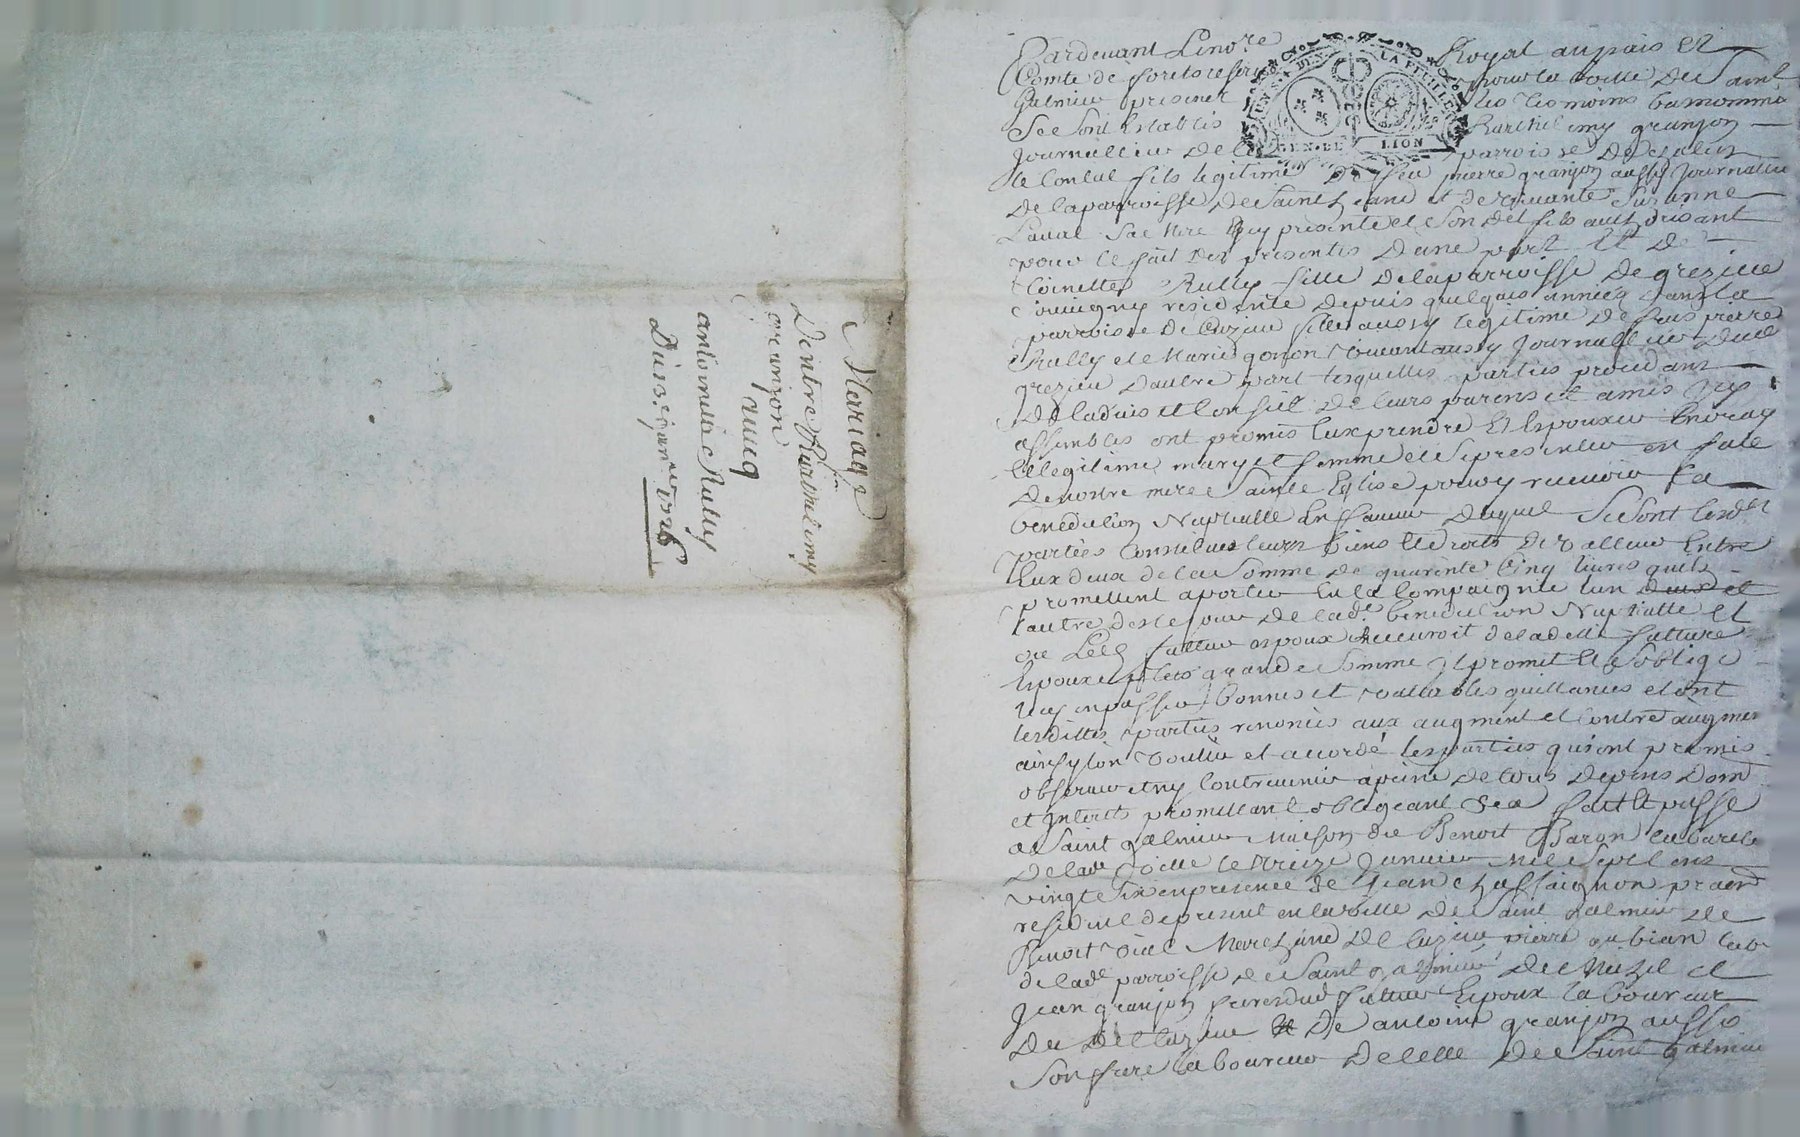 Mariage
Dentre Barthelemy
granjon
avecq
anthoinette Rully
Du 13.e janer 1726
Pardevant Le no.re Royal au païs et
Comté de forets reservé pour la ville de Saint
Galmier present les tesmoins bas nommés
Se sont Establis Barthelemy granjon
Journallier de la parroisse de
le Contal fils legitime de feu pierre granjon aussy Journallier
De la parroisse de Saint et de vivante Suzanne
Laval Sa Mere Icy presente et Son dit fils authorisant
pour le fait des presentes D'une part Et
Toinette Rully fille de la parroisse de grezieu
residente depuis quelques années dans la
parroisse de Cuzieu fille aussy legitime de feus pierre
Rully et Marie gonon vivant aussy Journallier dud
grezieu d'autre part lesquelles parties procedant
De l'advis et Conseil de leurs parens et amis Icy
assembles ont promis Eux prendre Et Espouxer En vray
et legitime mary et femme et se presenter en face
De nostre mere Sainte Eglise pour y recevoir La
benediction Nuptialle En faveur duquel Se sont lesd
parties Constitues leurs biens et droits de valleur Entre
Eux deux de la Somme de quarente Cinq livres quils
promettent aporter En la Compaignie l'un et
l'autre des le jour de lad.e benediction Nuptialle et
ou Led futtur espoux recevroit de laditte future
Espouxe plus grande Somme Il promet et s'oblige
luy en passer bonnes et vallables quittances et ont
lesdittes parties renoncés aux augment et Contre augment
ainsy l'on voullu et accordé les parties qui ont promis
observer et ny Contrevenir a peine de tous depens dom
et Interets promettant obligeant fait et passé
a Saint galmier Maison de Benoit Baron
de lad ville le treize Janvier Mil Sept Cens
vingt Six en presence de Jean Chassaignon
resident de present en la ville de Saint galmier de
Benoit vial Marchand de Cuzieu pierre gubian lab
de lad parroisse de Saint galmier De et
Jean granjon frere dud futtur Espoux laboureur
Du Cuzieu Et De antoine granjon aussi
Son frere laboureur de celle de Saint galmier
UN S. 4 DEN. LA FEUILLE
GEN. DE LION